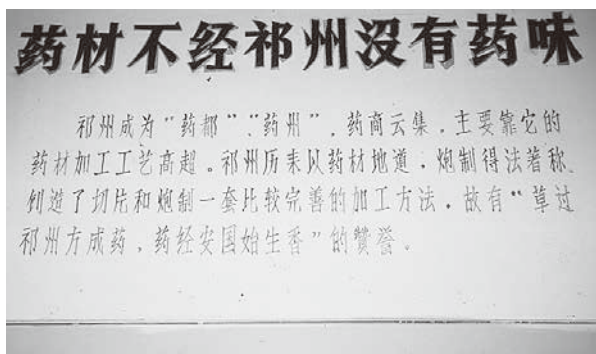 药材不经祁州没有药味
祁州成为“药都”、“药州”，药商云集，主要靠它的
药材加工工艺高超。祁州历来以药材地道，炮制得法著称，
创造了切片和炮制一套比较完善的加工方法，故有“草过
祁州方成药，药经安国始生香”的赞誉。